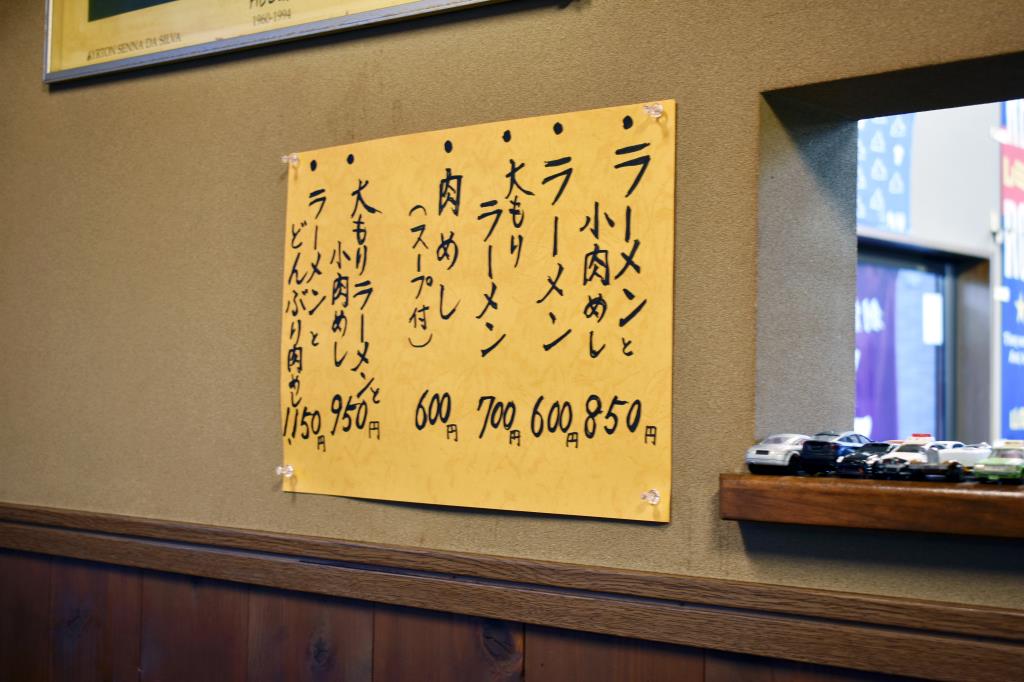 1960-1994
AYRTON SENNA DA SILVA
・ラーメンと
小肉めし
850円
・ラーメン
600円
・大もり
ラーメン
700円
・肉めし
(スープ付)
600円
・大もりラーメンと
小肉めし
950円
・ラーメンと
どんぶり肉めし
1,150円